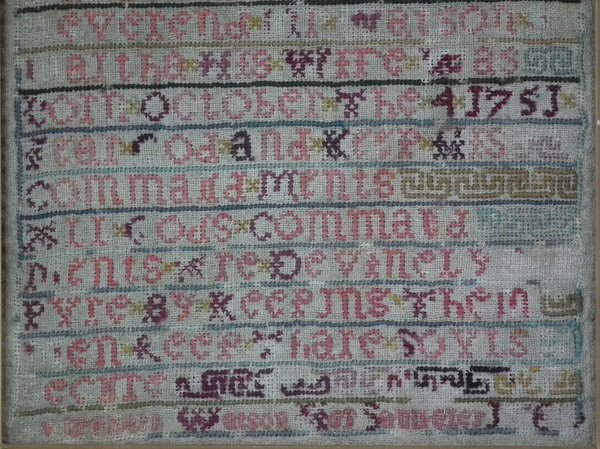 everend Watson
His Wife Was
Born October The 4 1751
Fear God and Keep His
Command Ments
All Gods Command
Ments Are Devinely
Pvre By Keeping Them
Men Keep Thare Sovls
Secvre
Watson Her Sampler